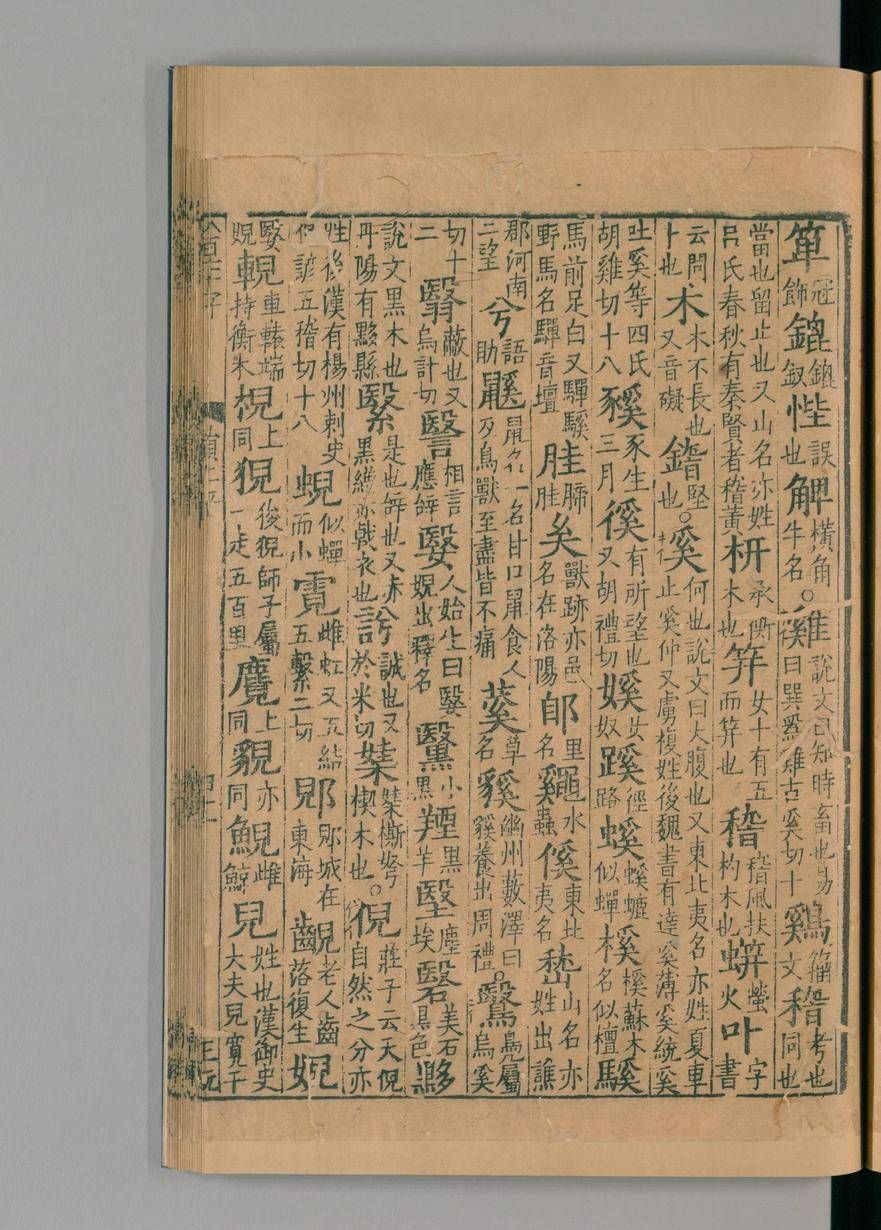 箄冠飾鎞鎞釵悂誤也䚜橫角牛名○雞說文曰知時畜也易曰巽爲雞古奚切十鷄籀文稽考也同也
當也留止也又山名亦姓呂氏春秋有秦賢者稽黃枅承衡木也笄女十有五而笄也扶杓木也蛢螢火卟字書
云問卜也禾木不長也又音礙堅也○奚何也說文曰大腹也又東北夷名亦姓夏車正奚仲又虜複姓後魏書有達奚薄奚統奚
吐奚等四氏胡雞切十八豯豕生三月徯有所望也又胡禮切㜎女奴蹊徑路螇螇蟅似蟬榽榽蘇木名似檀騱
馬前足白又驒騱野馬名驒音壇胿腣胿獸跡亦邑名在洛陽郋里名水蟲傒東北夷名嵆山名亦姓出譙
郡河南二望兮語助鼷鼠名一名甘口鼠食人及鳥獸至盡皆不痛蒵草名貕幽州藪澤曰貕養出周禮○鷖鳧屬烏奚
切十二翳蔽也又烏計切相言應辝嫛人始生曰嫛婗出釋名黳小黑羥黑羊塵埃䃜美石黑色黟
說文黑木也丹陽有黟縣繄是也辝也又赤黑繒亦戟衣也誠也又於米切楔木也○倪莊子云天倪自然之分亦
姓後漢有楊州刺史倪諺五稽切十八蜺似蟬而小霓雌虹又五結五繫二切郳郳城在東海齯老人齒落復生婗
嫛婗輗車轅端持衡木棿上同猊狻猊師子屬一走五百里麑上同貎亦同鯢雌鯨兒姓也漢御史大夫兒寬千